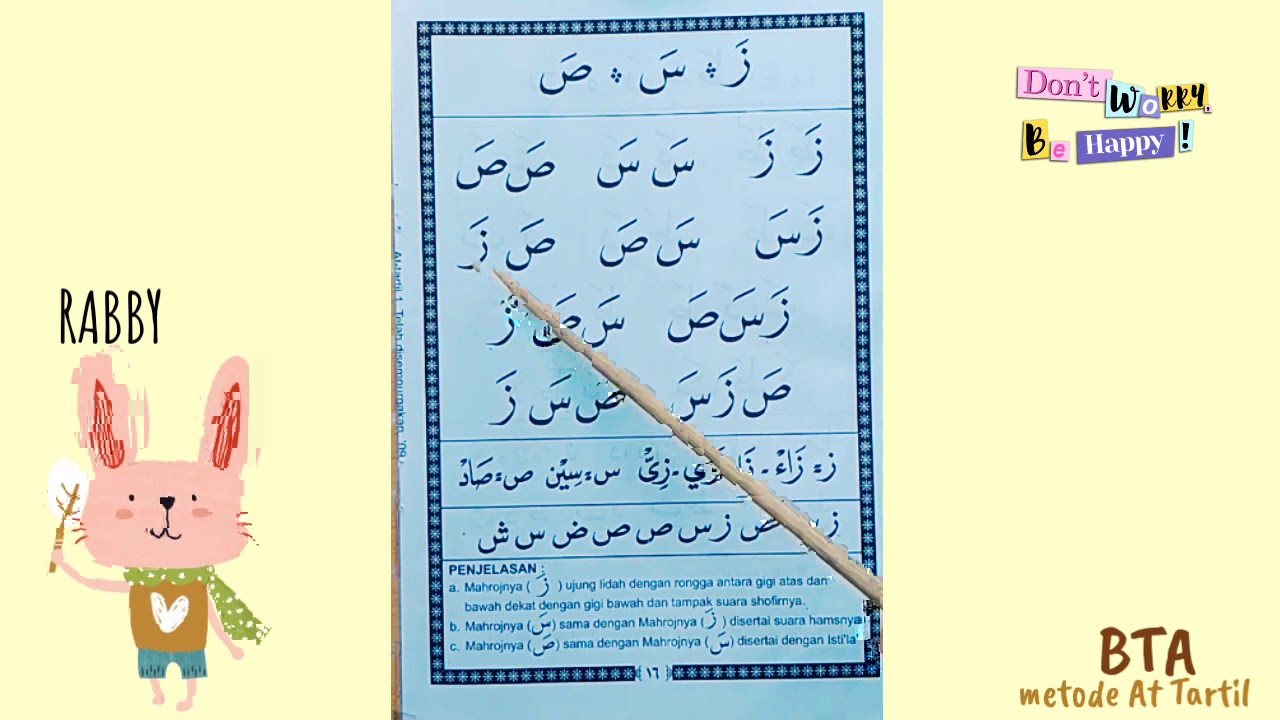 زَ ؞ سَ ؞ صَ
زَ زَ سَ سَ صَ صَ
زَ سَ سَ صَ صَ زَ
زَ سَ صَ سَ صَ زَ
صَ زَ سَ صَ سَ زَ
ز = زَاءْ - زَا زَيْ - زِيَّ س = سِيْنْ ص = صَادْ
ز ص ز س ص ص ض س ش
PENJELASAN :
a. Mahrojnya ( زَ ) ujung lidah dengan rongga antara gigi atas dan
bawah dekat dengan gigi bawah dan tampak suara shofirnya.
b. Mahrojnya (سَ) sama dengan Mahrojnya (زَ ) disertai suara hamsnya
c. Mahrojnya (صَ) sama dengan Mahrojnya (سَ) disertai dengan Isti'la'
١٦
At-tartil 1 Telah disempurnakan '09
RABBY
Don't WORRY,
Be Happy !
BTA
metode At Tartil